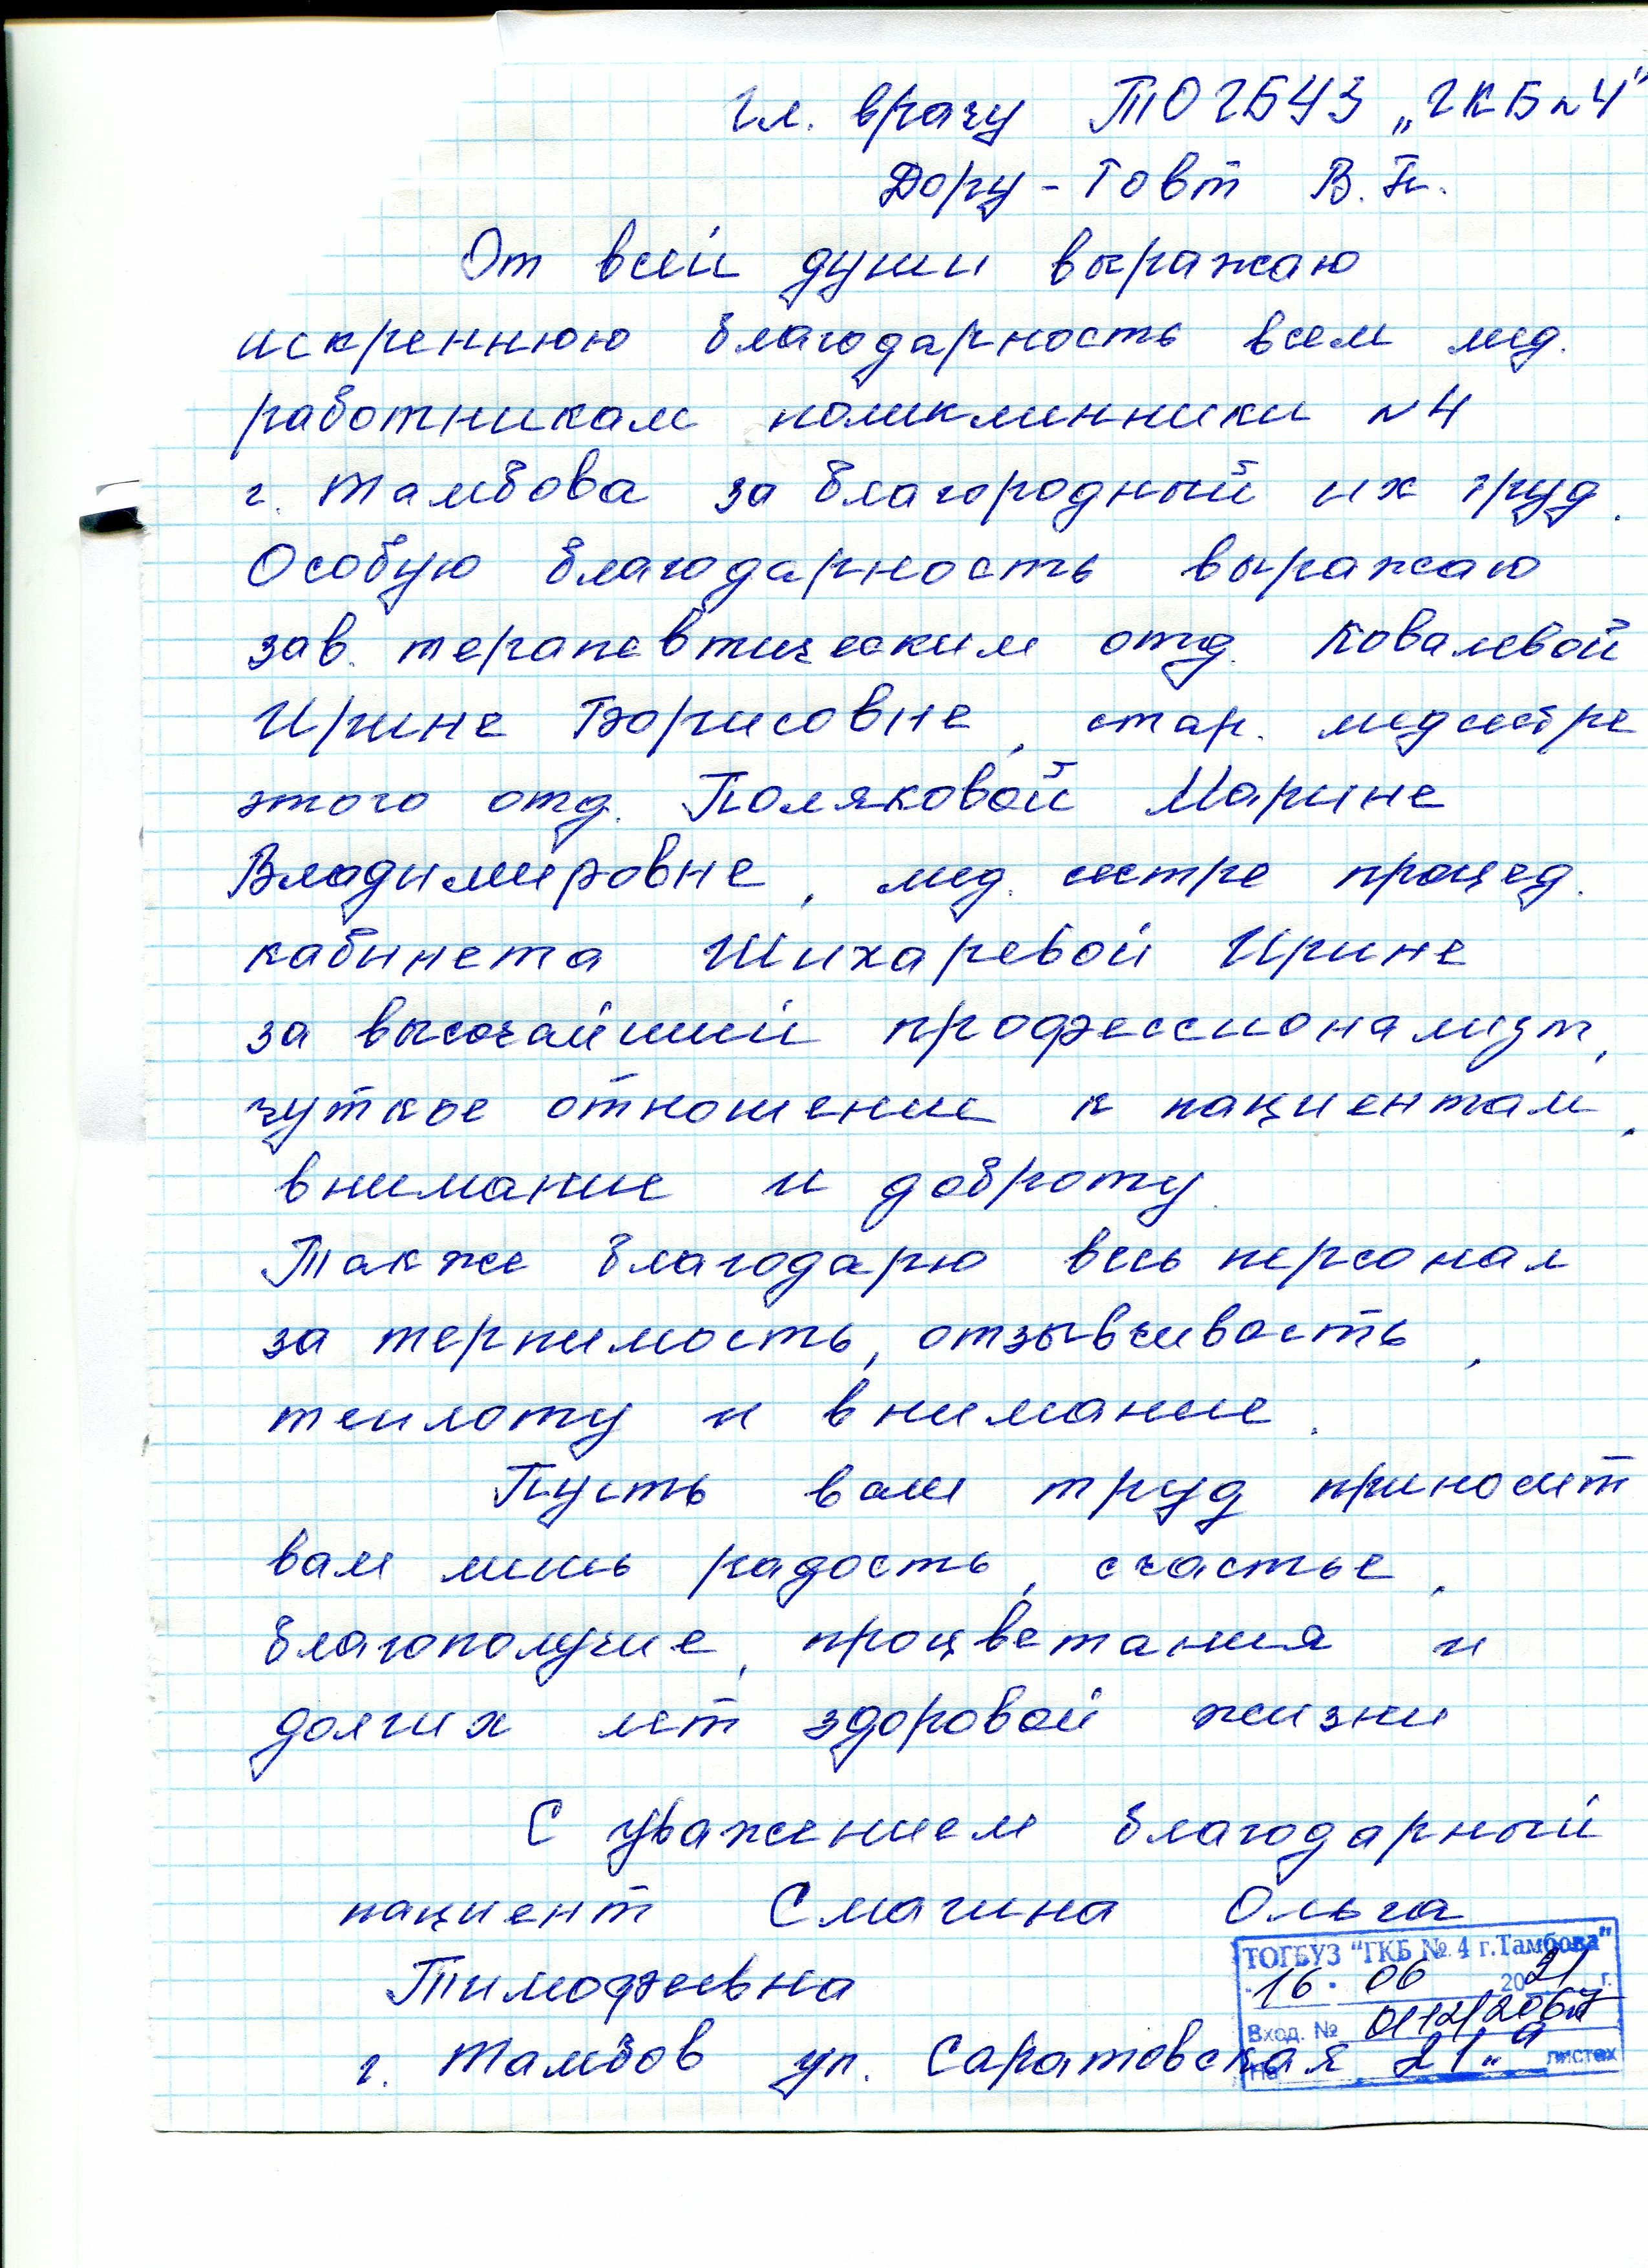 Гл. врачу ТОГБУЗ „ГКБ N4"
Дору-Товт В. П.
От всей души выражаю
искреннюю благодарность всем мед.
работникам поликлинники N4
г. Тамбова за благородный их труд.
Особую благодарность выражаю
зав. терапевтическим отд. Ковалевой
Ирине Борисовне, стар. медсестре
этого отд. Поляковой Марине
Владимировне, мед. сестре процед.
кабинета Шихаревой Ирине
за высочайший профессионализм,
чуткое отношение к пациентам,
внимание и доброту.
Также благодарю весь персонал
за терпимость, отзывчивость,
теплоту и внимание.
Пусть ваш труд приносит
вам лишь радость, счастье,
благополучие, процветания и
долгих лет здоровой жизни
С уважением благодарный
пациент Смагина Ольга
Тимофеевна
г. Тамбов ул. Саратовская 21 „а"
ТОГБУЗ "ГКБ № 4 г.Тамбова"
16. 06 2021 г.
Вход. №
На листах